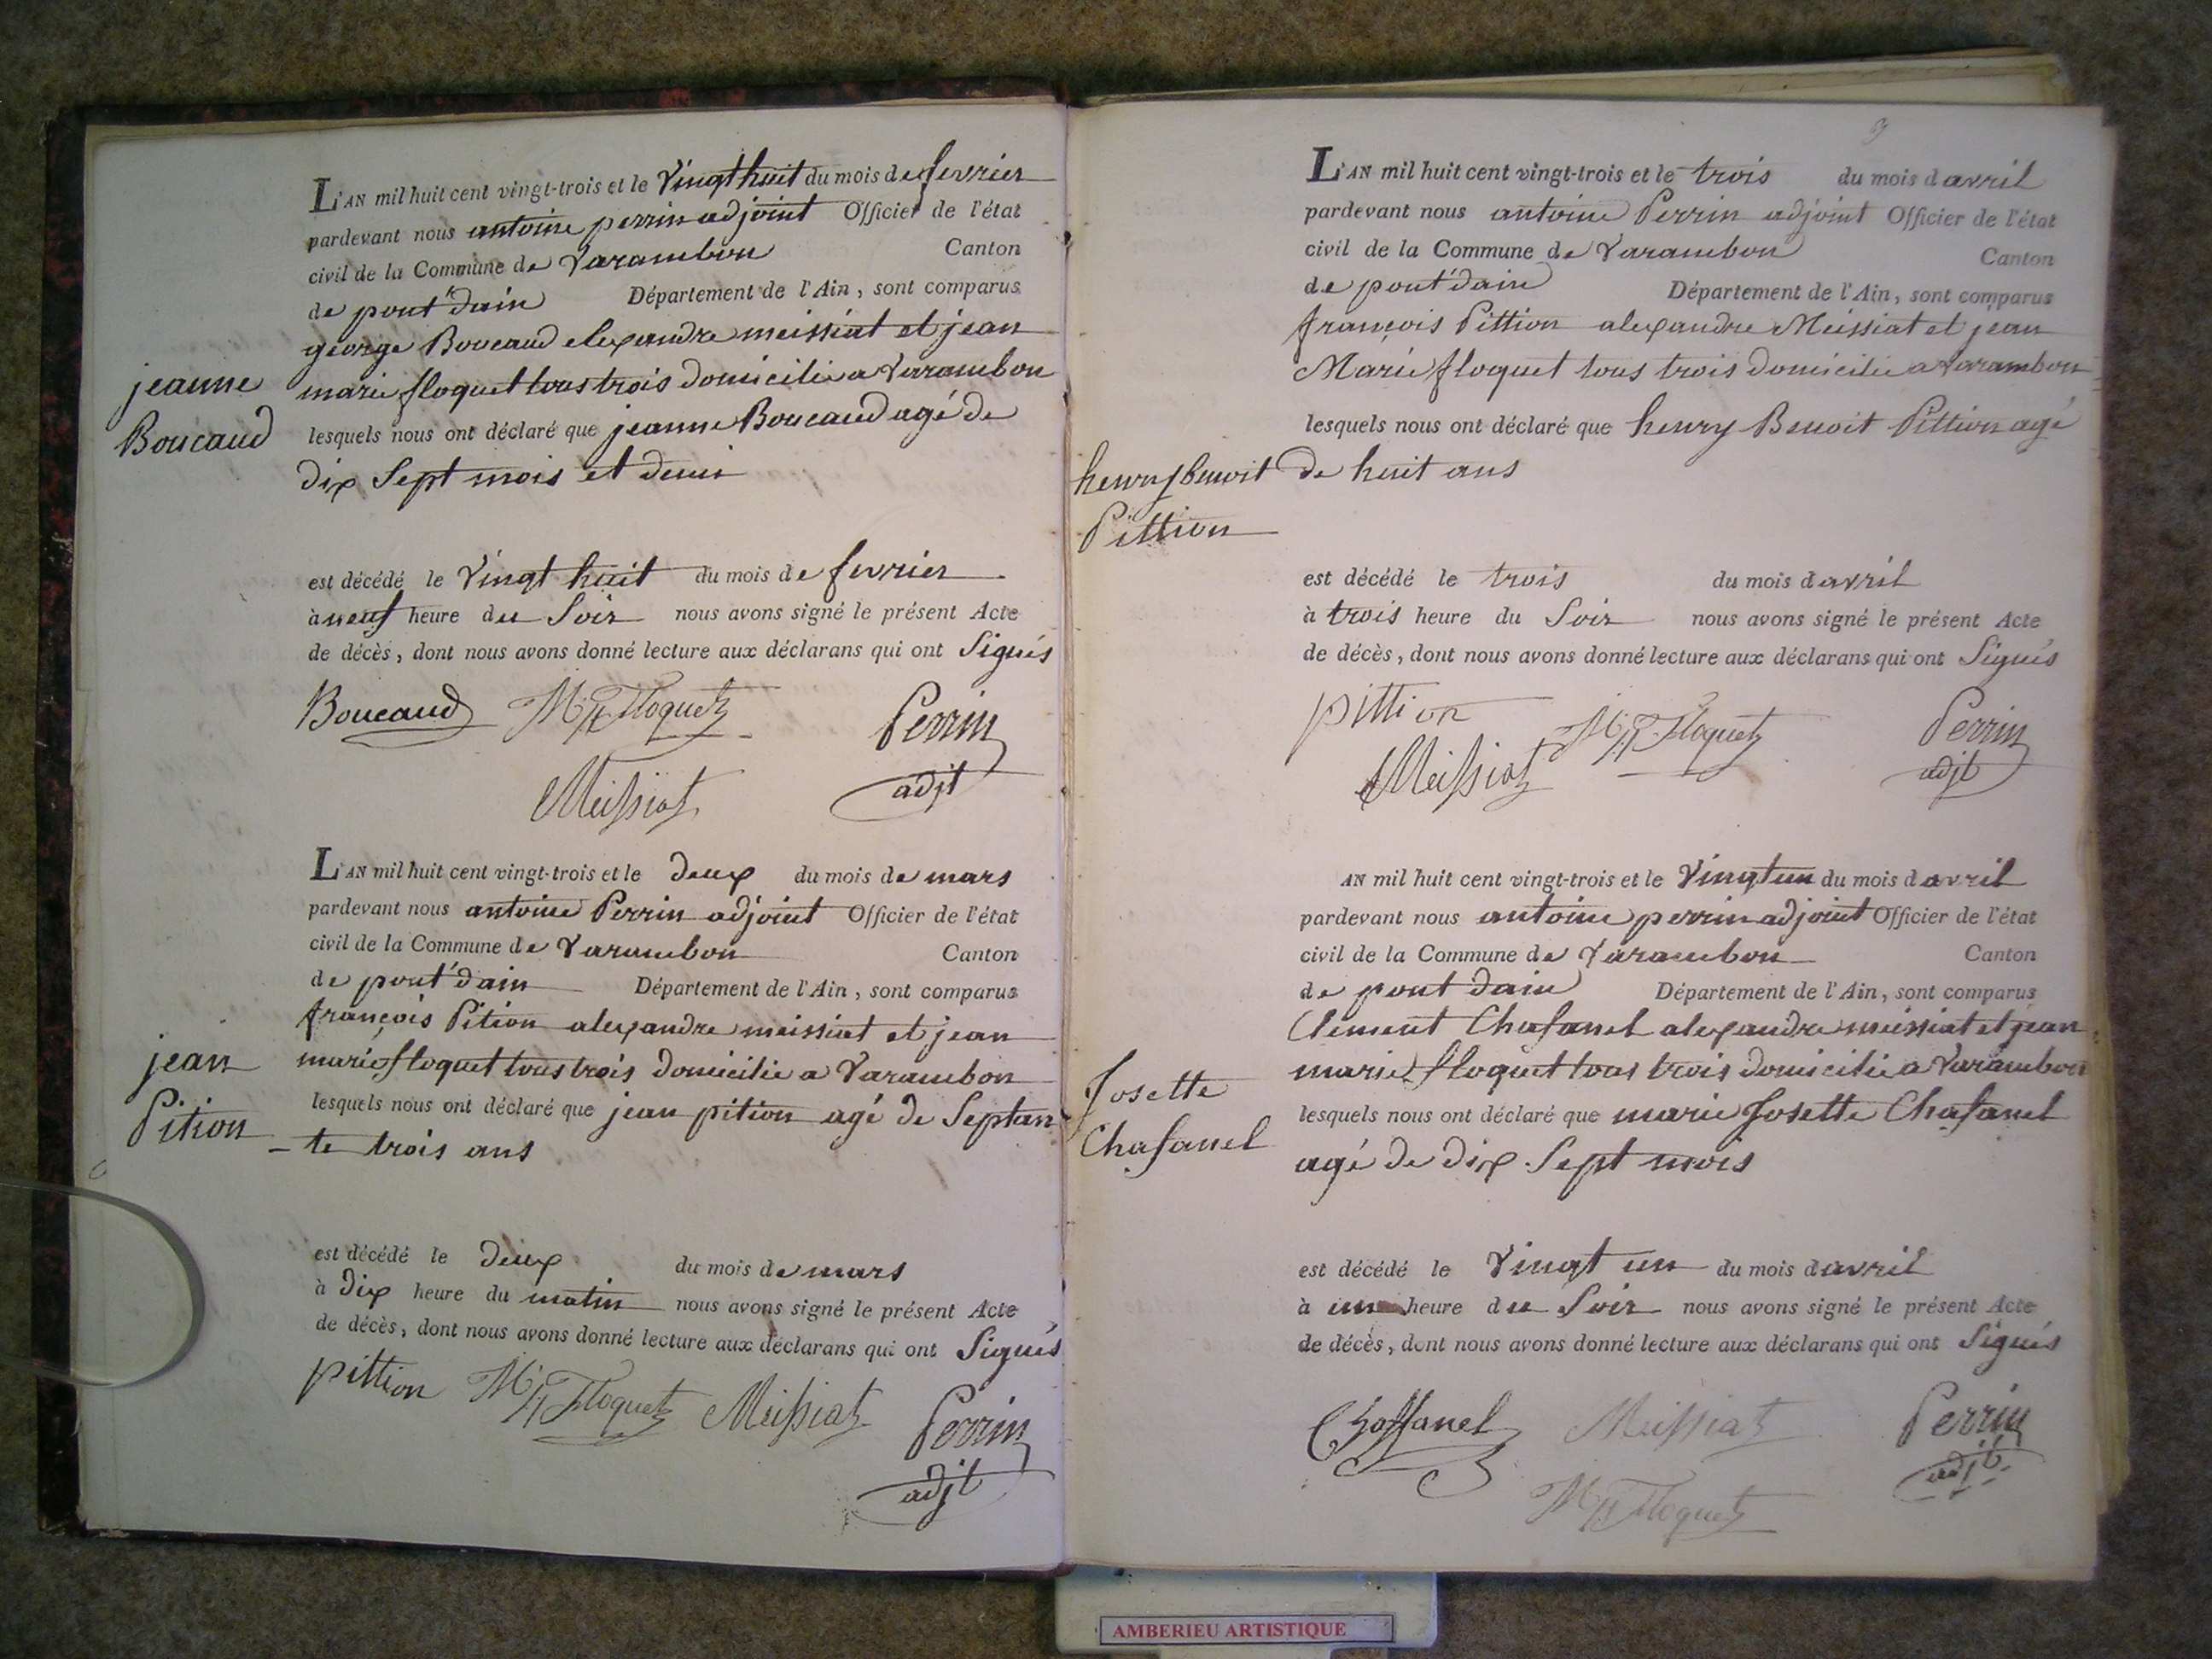 L'AN mil huit cent vingt-trois et le vingt huit du mois de fevrier
pardevant nous antoine perrin adjoint Officier de l'état
civil de la Commune de Varambon Canton
de pont d'ain Département de l'Ain, sont comparus
george Boucaud elexandre meissiat et jean
marie floquet tous trois domicilie a Varambon
jeanne
Boucaud
lesquels nous ont déclaré que jeanne Boucaud agé de
dix Sept mois et demi
est décédé le Vingt huit du mois de fevrier
à neuf heure du Soir nous avons signé le présent Acte
de décès, dont nous avons donné lecture aux déclarans qui ont Signés
Boucaud Floquet Perrin
Meissiat adjt
L'AN mil huit cent vingt-trois et le deux du mois de mars
pardevant nous antoine Perrin adjoint Officier de l'état
civil de la Commune de Varambon Canton
de pont d'ain Département de l'Ain, sont comparus
françois Pition alexandre meissiat et jean
marie floquet tous trois domicilie a Varambon
jean
Pition
lesquels nous ont déclaré que jean pition agé de Septan
- te trois ans
est décédé le deux du mois de mars
à dix heure du matin nous avons signé le présent Acte
de décès, dont nous avons donné lecture aux déclarans qui ont Signés
pittion Floquet Meissiat Perrin
adjt
9
L'AN mil huit cent vingt-trois et le trois du mois d avril
pardevant nous antoine Perrin adjoint Officier de l'état
civil de la Commune de Varambon Canton
de pont d'ain Département de l'Ain, sont comparus
françois Pittion alexandre Meissiat et jean
Marie floquet tous trois domicilie a Varambon
lesquels nous ont déclaré que henry Benoit Pittion agé
henry benoit
Pittion
de huit ans
est décédé le trois du mois d avril
à trois heure du Soir nous avons signé le présent Acte
de décès, dont nous avons donné lecture aux déclarans qui ont Signés
pittion Floquet Perrin
Meissiat adjt
AN mil huit cent vingt-trois et le Vingt un du mois d avril
pardevant nous antoine perrin adjoint Officier de l'état
civil de la Commune de Varambon Canton
de pont dain Département de l'Ain, sont comparus
Clement Chafanel alexandre meissiat et jean
marie floquet tous trois domicilie a Varambon
Josette
Chafanel
lesquels nous ont déclaré que marie Josette Chafanel
agé de dix Sept mois
est décédé le Vingt un du mois d avril
à une heure du Soir nous avons signé le présent Acte
de décès, dont nous avons donné lecture aux déclarans qui ont Signés
Chaffanel Meissiat Perrin
adjt
Floquet
AMBERIEU ARTISTIQUE